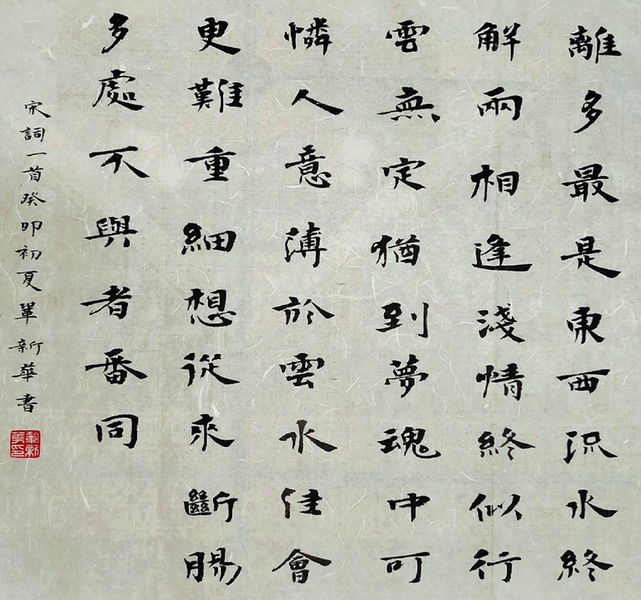 離多最是東西流水終
解兩相逢淺情終似行
雲無定猶到夢魂中可
憐人意薄於雲水佳會
更難重細想從來斷腸
多處不與者番同
宋詞一首癸卯初夏單新華書